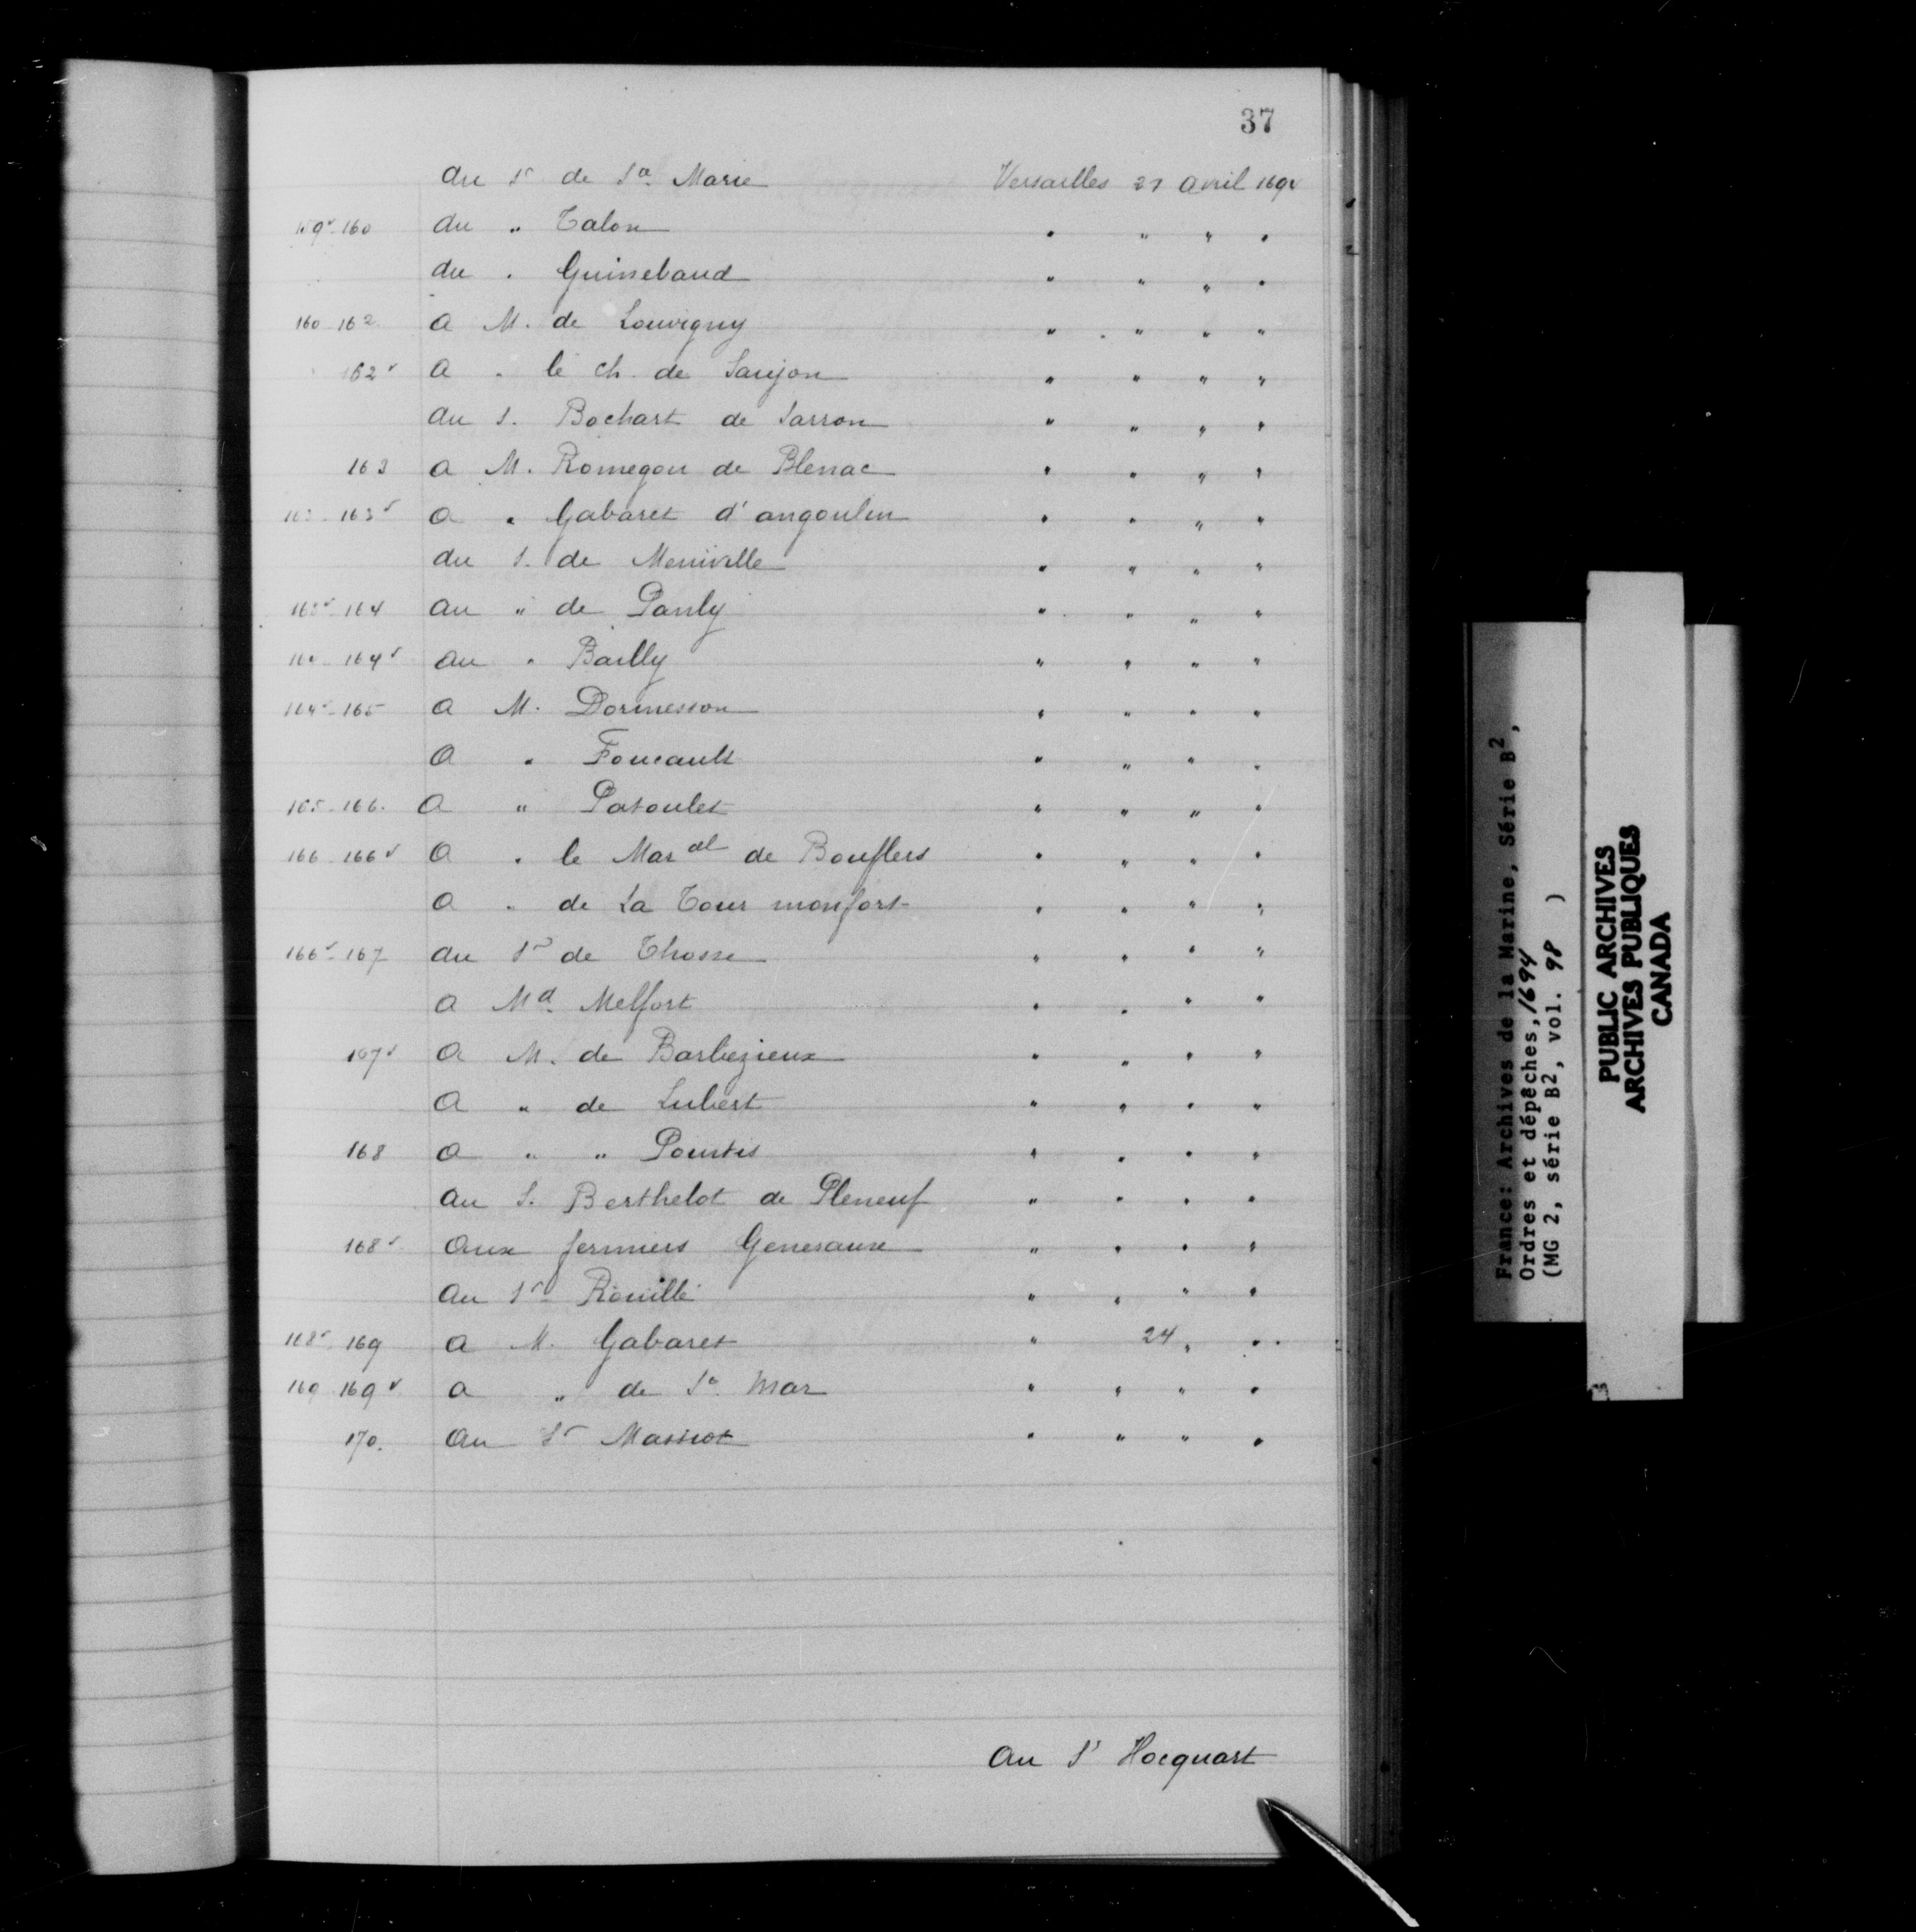 37
au Sr de Sa. Marie Versailles 21 avril 1694
159v-160 au " Talon " " " "
au " Guinebaud " " " "
160-162 a M. de Louvigny " " " "
162v a " le ch. de Saujon " " " "
au S. Bochart de Sarron " " " "
163 a M. Romegou de Blenac " " " "
163-163v a " Gabaret d'angoulin " " " "
au S. de Meniville " " " "
163v-164 au " de Pauly " " " "
164-164v au " Bailly " " " "
164v-165 a M. Dormesson " " " "
a " Foucault " " " "
165-166. a " Patoulet " " " "
166-166v a " le Maral de Bouflers " " " "
a " de La Tour monfort " " " "
166v-167 au Sr de Thosse " " " "
a Md. Melfort " " " "
167v a M. de Barbezieux " " " "
a " de Lubert " " " "
168 a " " Pourtis " " " "
au S. Berthelot de Pleneuf " " " "
168v aux fermiers Generaux " " " "
au Sr Rouillé " " " "
168v-169 a M. Gabaret " 24 " "
169-169v a " de Se. Mar " " " "
170. au Sr Massiot " " " "
au Sr Hocquart
France: Archives de la Marine, Série B2,
Ordres et dépêches, 1694
(MG 2, série B2, vol. 98 )
PUBLIC ARCHIVES
ARCHIVES PUBLIQUES
CANADA